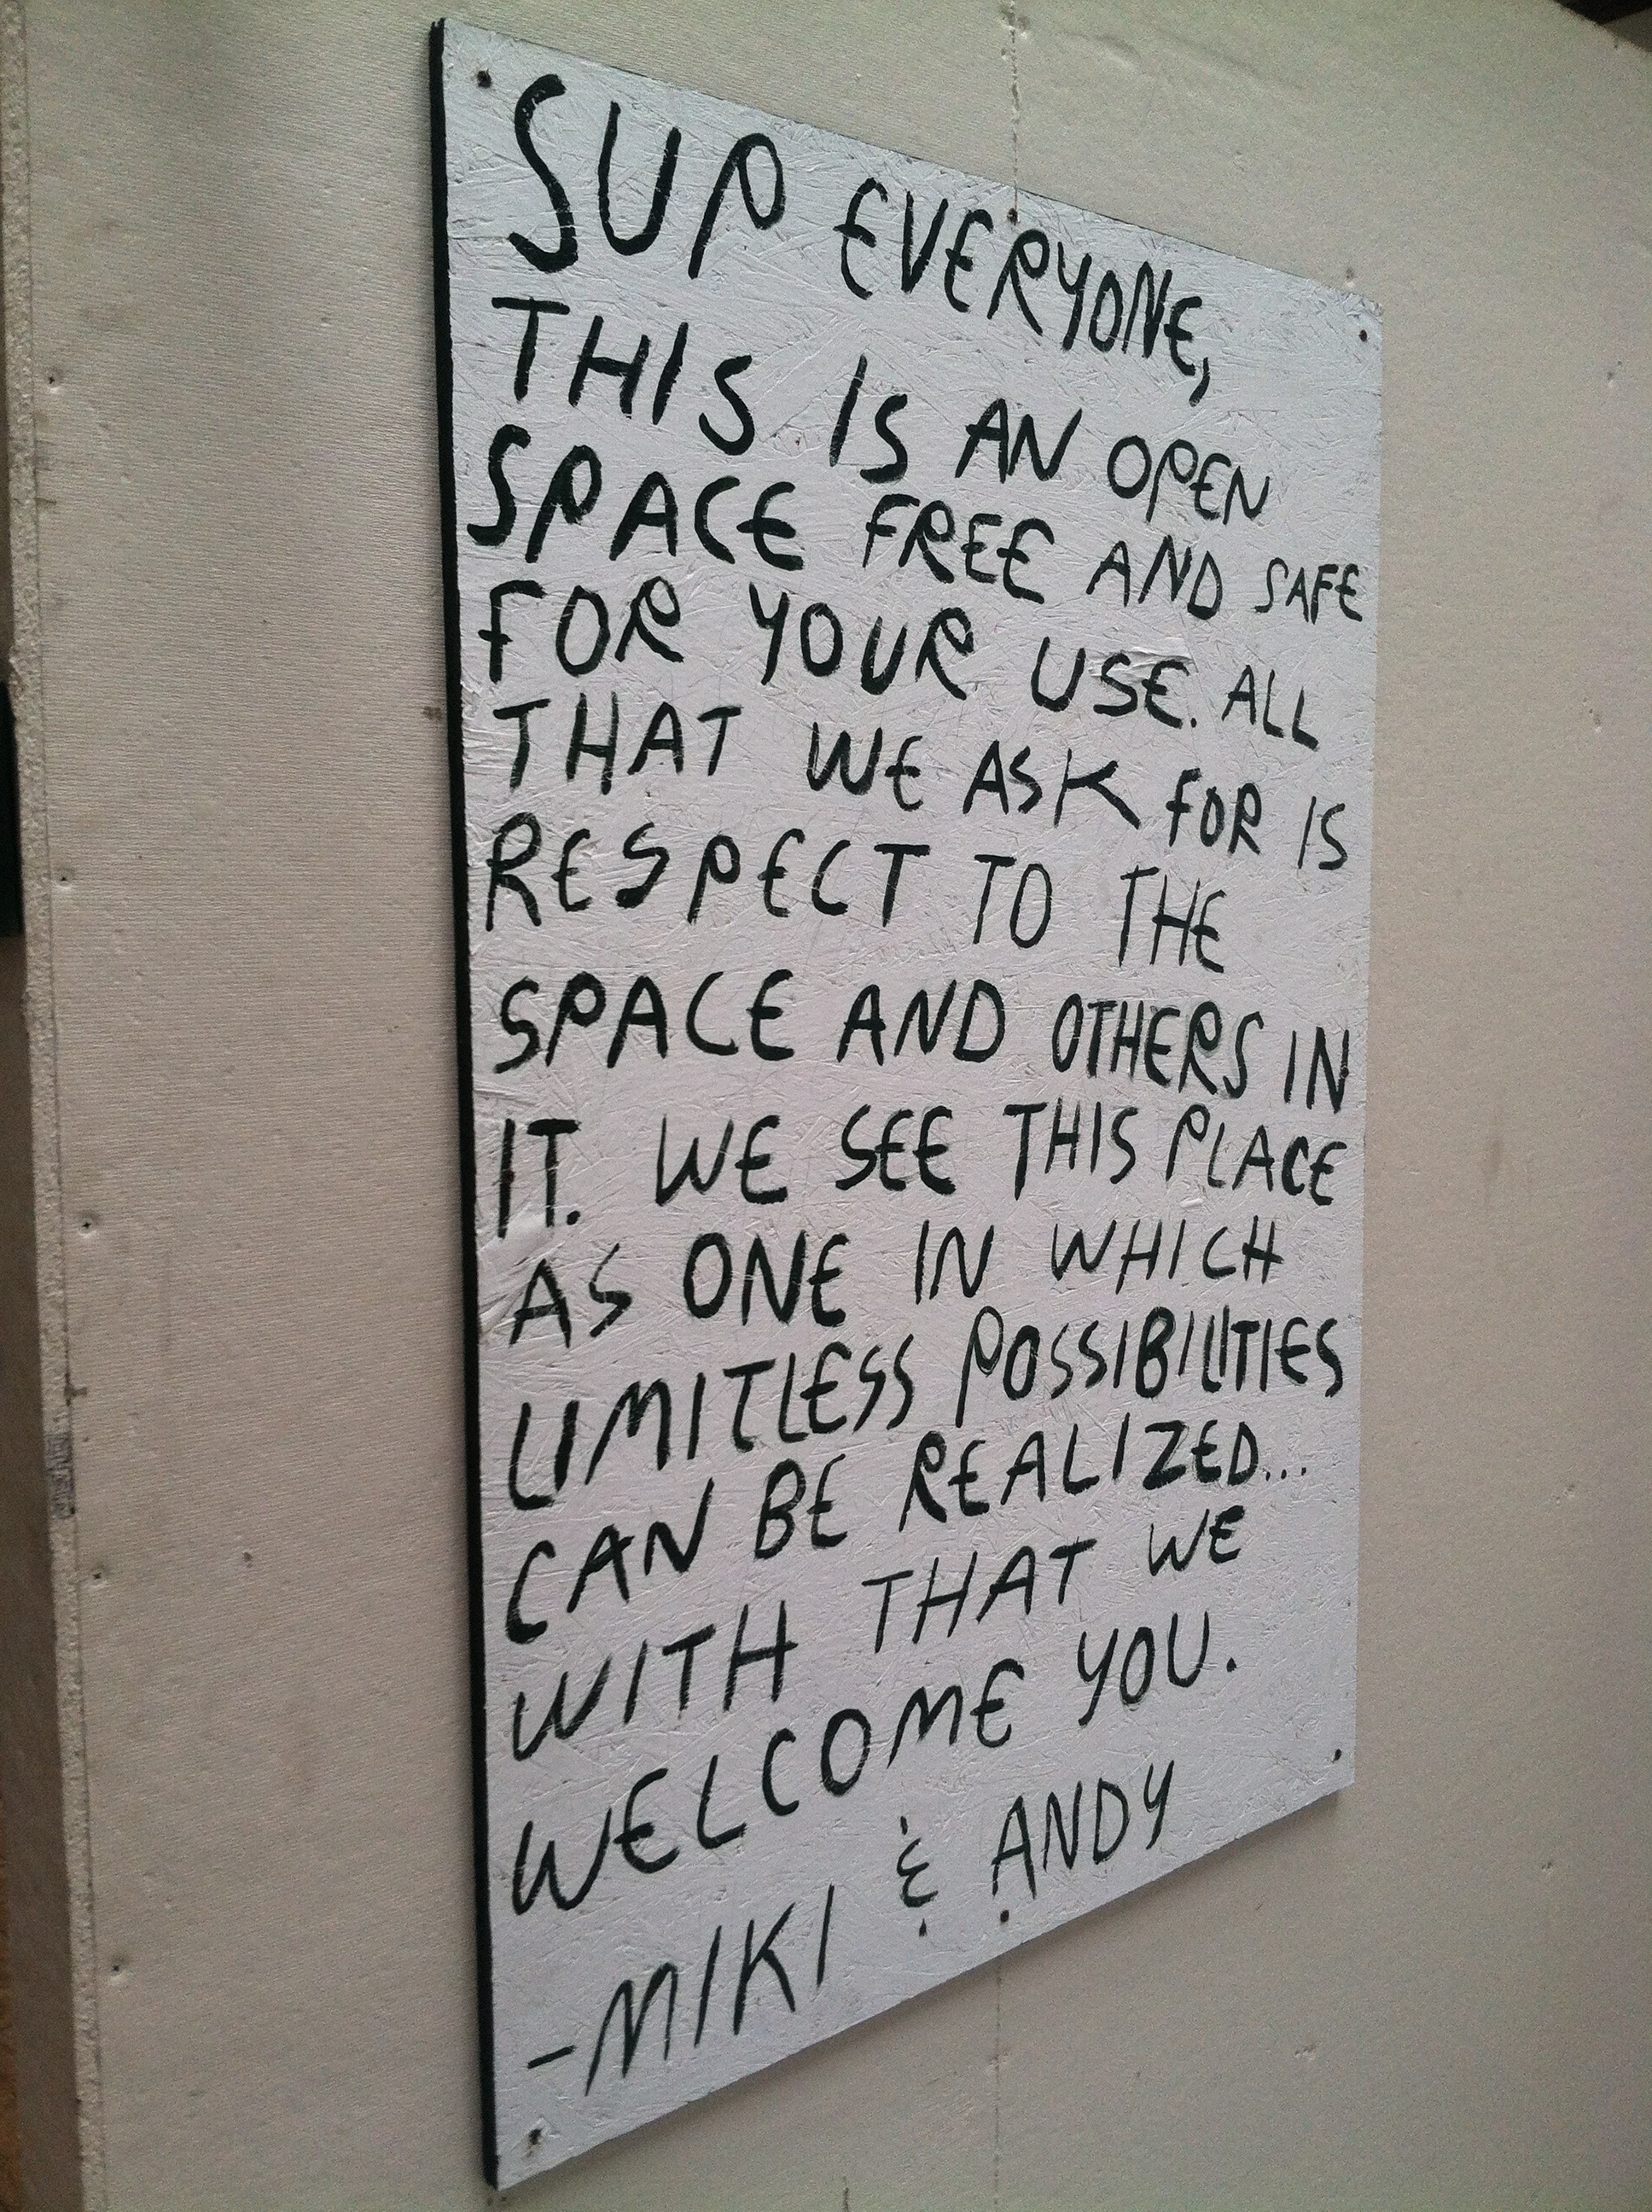 SUP EVERYONE,
THIS IS AN OPEN
SPACE FREE AND SAFE
FOR YOUR USE. ALL
THAT WE ASK FOR IS
RESPECT TO THE
SPACE AND OTHERS IN
IT. WE SEE THIS PLACE
AS ONE IN WHICH
LIMITLESS POSSIBILITIES
CAN BE REALIZED...
WITH THAT WE
WELCOME YOU.
-MIKI & ANDY